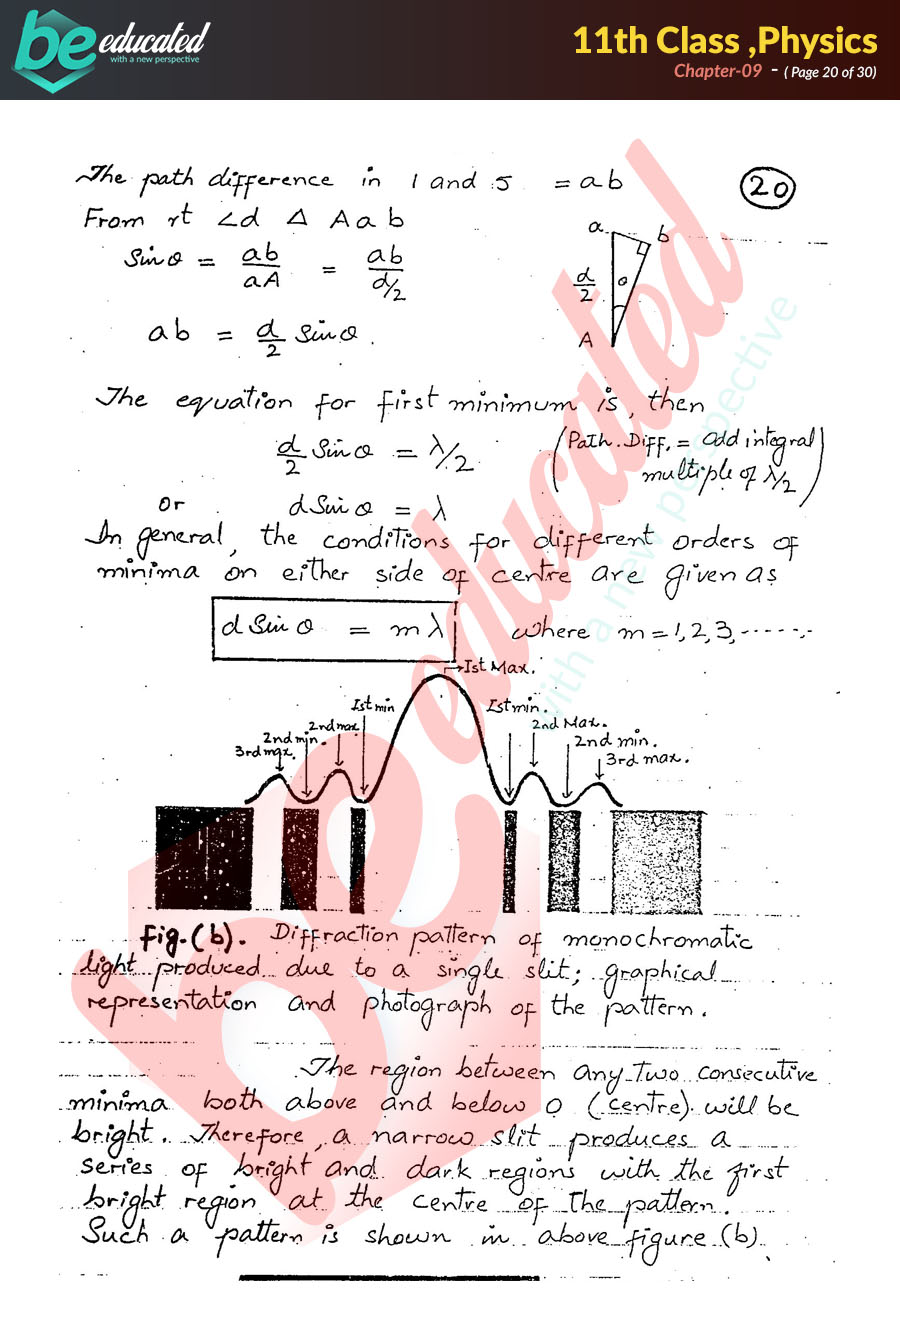 be educated
with a new perspective
11th Class ,Physics
Chapter-09 - ( Page 20 of 30)
The path difference in 1 and 5 = ab
20
From rt ∠d △ A a b
Sinθ = ab/aA = ab/d/2
a b
d/2 θ
A
ab = d/2 Sinθ.
The equation for first minimum is, then
d/2 Sinθ = λ/2 (Path. Diff. = odd integral
multiple of λ/2)
or dSinθ = λ
In general, the conditions for different orders of
minima on either side of centre are given as
d Sinθ = mλ where m = 1, 2, 3, ------
Ist Max.
Ist min Ist min.
2nd max 2nd Max.
2nd min. 2nd min.
3rd max. 3rd max.
Fig.(b). Diffraction pattern of monochromatic
light produced due to a single slit; graphical
representation and photograph of the pattern.
The region between any two consecutive
minima both above and below O (centre) will be
bright. Therefore, a narrow slit produces a
series of bright and dark regions with the first
bright region at the centre of the pattern.
Such a pattern is shown in above figure (b).
be educated
with a new perspective